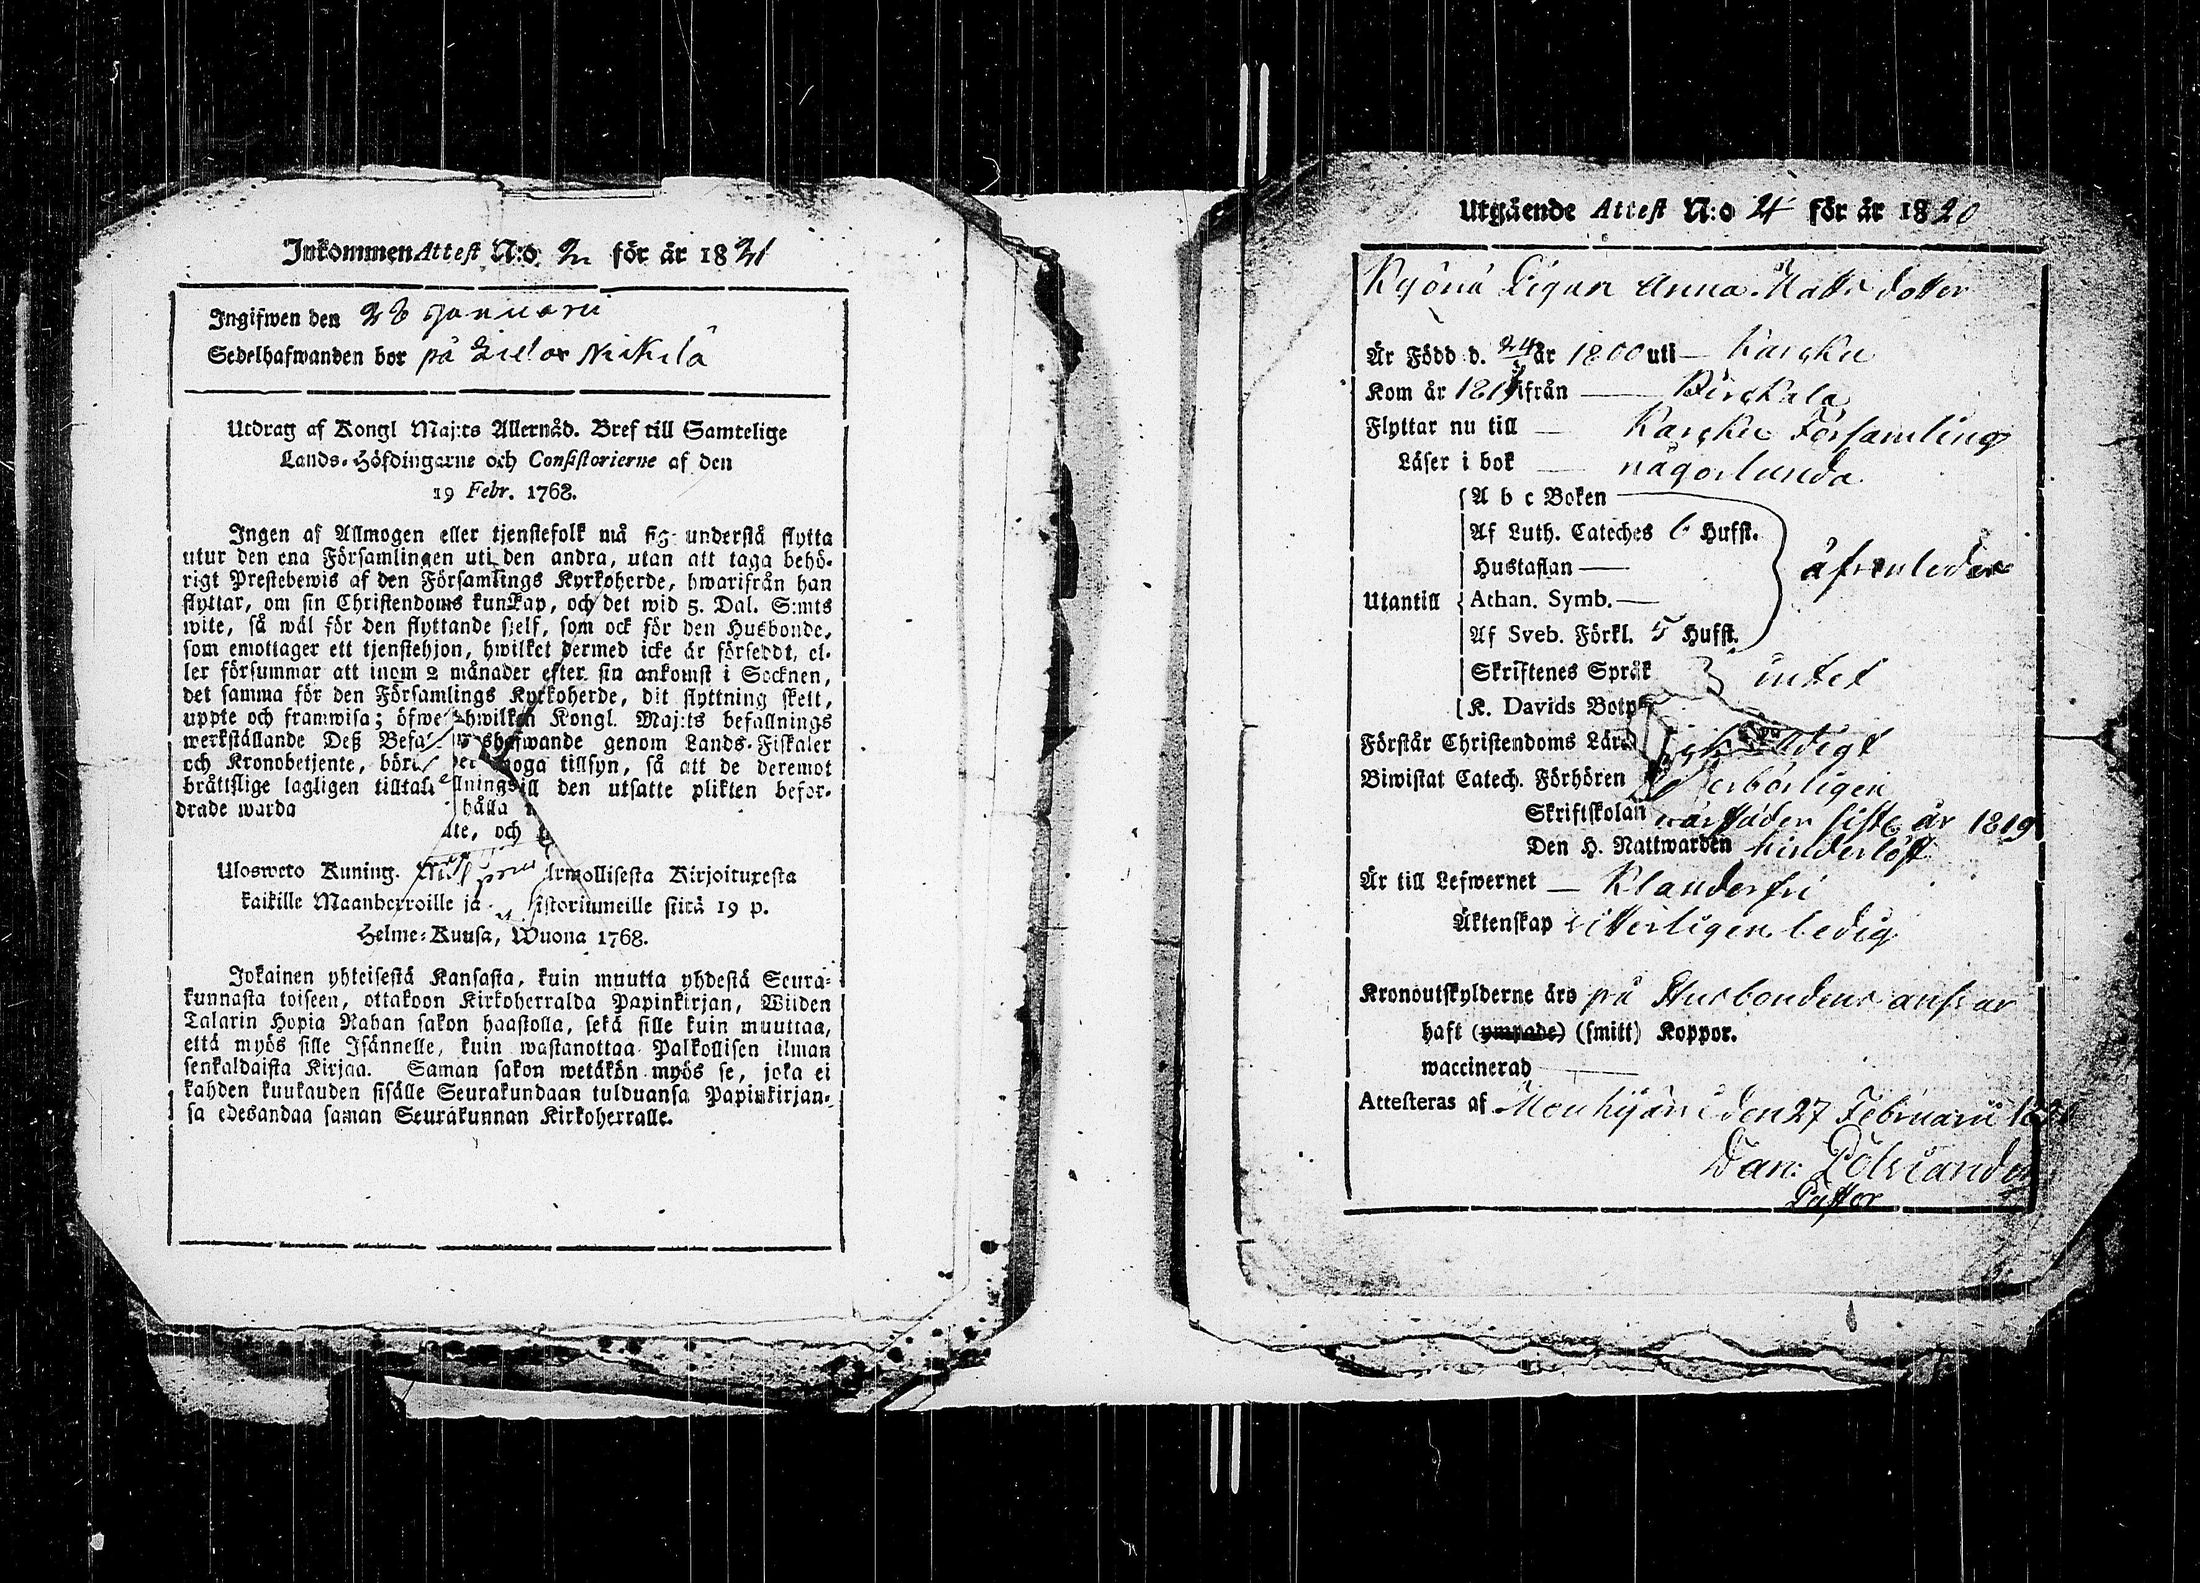 Inkommen Attest N:o 2 för år 1821
Ingifwen den 28 Januarii
Sedelhafwanden bor på Nikilä
Utdrag af Kongl Maj:ts Allernåd. Bref till Samtelige
Lands-Höfdingarne och Consistorierne af den
19 Febr. 1768.
Ingen af Allmogen eller tjenstefolk må sig understå flytta
utur den ena Församlingen uti den andra, utan att taga behö-
rigt Prestebewis af den Församlings Kyrkoherde, hwarifrån han
flyttar, om sin Christendoms kunskap, och det wid 5. Dal. S:mts
wite, så wäl för den flyttande sjelf, som ock för den Husbonde,
som emottager ett tjenstehjon, hwilket dermed icke är försedt, el-
ler försummar att inom 2 månader efter sin ankomst i Socknen,
det samma för den Församlings Kyrkoherde, dit flyttning skett,
uppte och framwisa; öfwer hwilken Kongl. Maj:ts befallnings
werkställande Deß hafwande genom Lands-Fiskaler
och Kronobetjente, noga tillsyn, så att de deremot
bråttslige lagligen till den utsatte plikten befor-
drade warda
hålla
och
Ulosweto Kuning. Armollisesta Kirjoituxesta
kaikille Maanherroille ja sistoriumeille siitä 19 p.
Helme-Kuusa, Wuona 1768.
Jokainen yhteisestä Kansasta, kuin muutta yhdestä Seura-
kunnasta toiseen, ottakoon Kirkoherralda Papinkirjan, Wiiden
Talarin Hopia Rahan sakon haastolla, sekä sille kuin muuttaa,
että myös sille Isännelle, kuin wastanottaa Palkollisen ilman
senkaldaista Kirjaa. Saman sakon wetäkön myös se, joka ei
kahden kuukauden sisälle Seurakundaan tulduansa Papinkirjan-
sa edesandaa saman Seurakunnan Kirkoherralle.
Utgående Attest N:o 4 för år 1820
Kyönä Pigan Anna Matts dotter
Är Född d. 24 år 1800 uti — Karcku
Kom år 1819 ifrån — Birckala
Flyttar nu till — Karcku Församling
Läser i bok — någorlunda
A b c Boken
Af Luth. Cateches 6 Hufst.
Hustaflan —
Utantill Athan. Symb. —
Af Sveb. Förkl. 5 Hufst.
åfwenledes
Skriftenes Språk
intet
K. Davids Botps
Förstår Christendoms Lära
Biwistat Catech. Förhören
Skriftskolan sista år 1819
Den H. Nattwarden hinderlöst
Är till Lefwernet — Klanderfri
Äktenskap witterligen ledig
Kronoutskylderne äro på Husbondens answar
haft (ympade) (smitt) Koppor.
waccinerad —
Attesteras af Mouhijärvi den 27 Februarii 1821
Dan: Polviander
Pastor